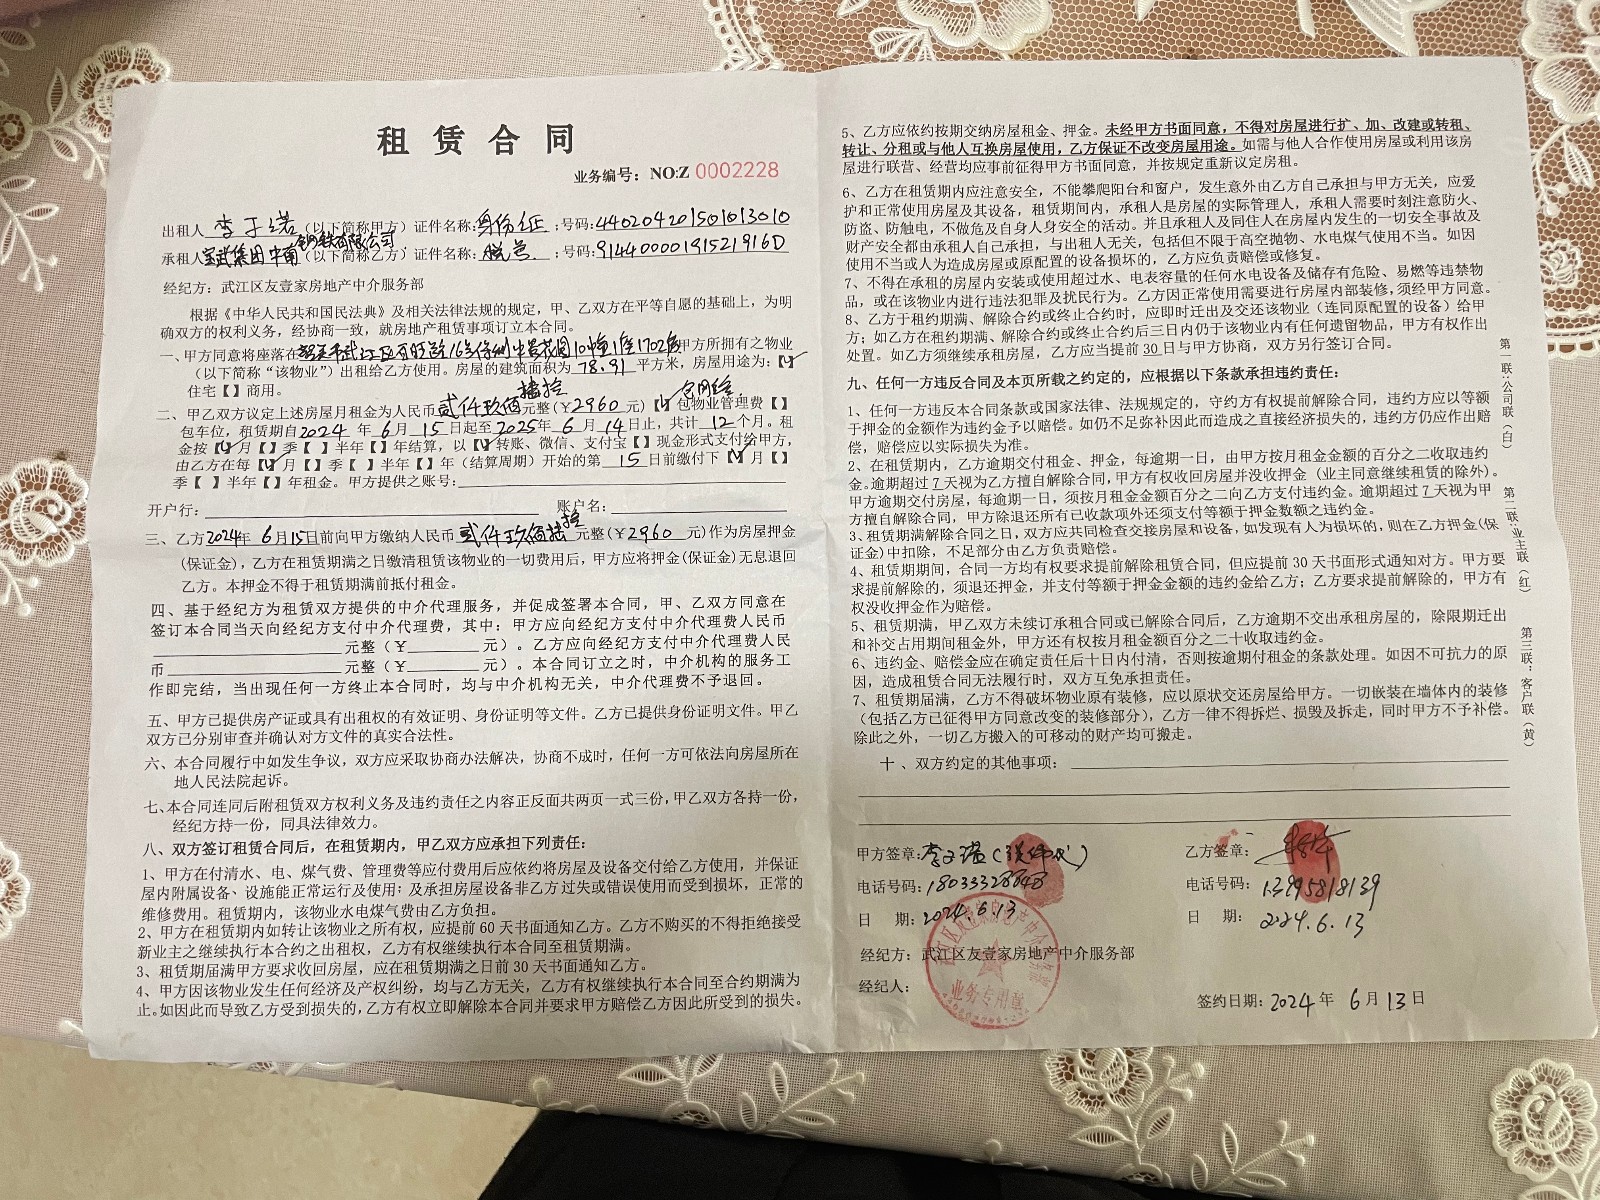 租赁合同
业务编号：NO:Z 0002228
出租人 李于诺 （以下简称甲方）证件名称：身份证；号码：440204201501013010
承租人 宝武集团中南钢铁有限公司 （以下简称乙方）证件名称：税号；号码：91440000191521916D
经纪方：武江区友壹家房地产中介服务部
根据《中华人民共和国民法典》及相关法律法规的规定，甲、乙双方在平等自愿的基础上，为明
确双方的权利义务，经协商一致，就房地产租赁事项订立本合同。
一、甲方同意将座落在韶关市武江区百旺路16号 花园10幢1座1702房甲方所拥有之物业
（以下简称“该物业”）出租给乙方使用。房屋的建筑面积为78.91平方米，房屋用途为：【√】
住宅【】商用。
二、甲乙双方议定上述房屋月租金为人民币贰仟玖佰陆拾元整（￥2960元）【√】包物业管理费【】
包车位，租赁期自2024年6月15日起至2025年6月14日止，共计12个月。租
金按【√】月【】季【】半年【】年结算，以【√】转账、微信、支付宝【】现金形式支付给甲方，
由乙方在每【√】月【】季【】半年【】年（结算周期）开始的第15日前缴付下【√】月【】
季【】半年【】年租金。甲方提供之账号：
开户行： 账户名：
三、乙方2024年6月15日前向甲方缴纳人民币贰仟玖佰陆拾元整（￥2960元）作为房屋押金
(保证金)，乙方在租赁期满之日缴清租赁该物业的一切费用后，甲方应将押金(保证金)无息退回
乙方。本押金不得于租赁期满前抵付租金。
四、基于经纪方为租赁双方提供的中介代理服务，并促成签署本合同，甲、乙双方同意在
签订本合同当天向经纪方支付中介代理费，其中：甲方应向经纪方支付中介代理费人民币
元整（￥ 元）。乙方应向经纪方支付中介代理费人民
币 元整（￥ 元）。本合同订立之时，中介机构的服务工
作即完结，当出现任何一方终止本合同时，均与中介机构无关，中介代理费不予退回。
五、甲方已提供房产证或具有出租权的有效证明、身份证明等文件。乙方已提供身份证明文件。甲乙
双方已分别审查并确认对方文件的真实合法性。
六、本合同履行中如发生争议，双方应采取协商办法解决，协商不成时，任何一方可依法向房屋所在
地人民法院起诉。
七、本合同连同后附租赁双方权利义务及违约责任之内容正反面共两页一式三份，甲乙双方各持一份，
经纪方持一份，同具法律效力。
八、双方签订租赁合同后，在租赁期内，甲乙双方应承担下列责任：
1、甲方在付清水、电、煤气费、管理费等应付费用后应依约将房屋及设备交付给乙方使用，并保证
屋内附属设备、设施能正常运行及使用：及承担房屋设备非乙方过失或错误使用而受到损坏，正常的
维修费用。租赁期内，该物业水电煤气费由乙方负担。
2、甲方在租赁期内如转让该物业之所有权，应提前60天书面通知乙方。乙方不购买的不得拒绝接受
新业主之继续执行本合约之出租权，乙方有权继续执行本合同至租赁期满。
3、租赁期届满甲方要求收回房屋，应在租赁期满之日前30天书面通知乙方。
4、甲方因该物业发生任何经济及产权纠纷，均与乙方无关，乙方有权继续执行本合同至合约期满为
止。如因此而导致乙方受到损失的，乙方有权立即解除本合同并要求甲方赔偿乙方因此所受到的损失。
5、乙方应依约按期交纳房屋租金、押金。未经甲方书面同意，不得对房屋进行扩、加、改建或转租、
转让、分租或与他人互换房屋使用，乙方保证不改变房屋用途。如需与他人合作使用房屋或利用该房
屋进行联营、经营均应事前征得甲方书面同意，并按规定重新议定房租。
6、乙方在租赁期内应注意安全，不能攀爬阳台和窗户，发生意外由乙方自己承担与甲方无关，应爱
护和正常使用房屋及其设备，租赁期间内，承租人是房屋的实际管理人，承租人需要时刻注意防火、
防盗、防触电，不做危及自身人身安全的活动。并且承租人及同住人在房屋内发生的一切安全事故及
财产安全都由承租人自己承担，与出租人无关，包括但不限于高空抛物、水电煤气使用不当。如因
使用不当或人为造成房屋或原配置的设备损坏的，乙方应负责赔偿或修复。
7、不得在承租的房屋内安装或使用超过水、电表容量的任何水电设备及储存有危险、易燃等违禁物
品，或在该物业内进行违法犯罪及扰民行为。乙方因正常使用需要进行房屋内部装修，须经甲方同意。
8、乙方于租约期满、解除合约或终止合约时，应即时迁出及交还该物业（连同原配置的设备）给甲
方；如乙方在租约期满、解除合约或终止合约后三日内仍于该物业内有任何遗留物品，甲方有权作出
处置。如乙方须继续承租房屋，乙方应当提前30日与甲方协商，双方另行签订合同。
九、任何一方违反本合同及本页所载之约定的，应根据以下条款承担违约责任：
1、任何一方违反本合同条款或国家法律、法规规定的，守约方有权提前解除合同，违约方应以等额
于押金的金额作为违约金予以赔偿。如仍不足弥补因此而造成之直接经济损失的，违约方仍应作出赔
偿，赔偿应以实际损失为准。
2、在租赁期内，乙方逾期交付租金、押金，每逾期一日，由甲方按月租金金额的百分之二收取违约
金。逾期超过7天视为乙方擅自解除合同，甲方有权收回房屋并没收押金（业主同意继续租赁的除外）。
甲方逾期交付房屋，每逾期一日，须按月租金金额百分之二向乙方支付违约金。逾期超过7天视为甲
方擅自解除合同，甲方除退还所有已收款项外还须支付等额于押金数额之违约金。
3、租赁期满解除合同之日，双方应共同检查交接房屋和设备，如发现有人为损坏的，则在乙方押金(保
证金)中扣除，不足部分由乙方负责赔偿。
4、租赁期期间，合同一方均有权要求提前解除租赁合同，但应提前30天书面形式通知对方。甲方要
求提前解除的，须退还押金，并支付等额于押金金额的违约金给乙方；乙方要求提前解除的，甲方有
权没收押金作为赔偿。
5、租赁期满，甲甲乙双方未续订承租合同或已解除合同后，乙方逾期不交出承租房屋的，除限期迁出
和补交占用期间租金外，甲方还有权按月租金额百分之二十收取违约金。
6、违约金、赔偿金应在确定责任后十日内付清，否则按逾期付租金的条款处理。如因不可抗力的原
因，造成租赁合同无法履行时，双方互免承担责任。
7、租赁期届满，乙方不得破坏物业原有装修，应以原状交还房屋给甲方。一切嵌装在墙体内的装修
（包括乙方已征得甲方同意改变的装修部分），乙方一律不得拆烂、损毁及拆走，同时甲方不予补偿。
除此之外，一切乙方搬入的可移动的财产均可搬走。
十、双方约定的其他事项：
甲方签章： 乙方签章：
电话号码：18033328848 电话号码：13995818139
日 期：2024.6.13 日 期：2024.6.13
经纪方：武江区友壹家房地产中介服务部
经纪人：
业务专用章
签约日期：2024年6月13日
第一联：公司联（白）
第二联：业主联（红）
第三联：客户联（黄）